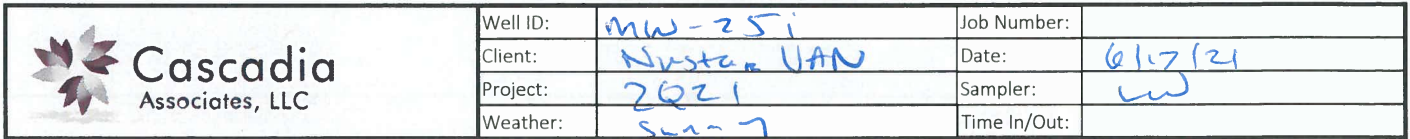 Cascadia
Associates, LLC
Well ID: MW-25i Job Number:
Client: Nustar VAN Date: 6/17/21
Project: 2Q21 Sampler:
Weather: Sunny Time In/Out: